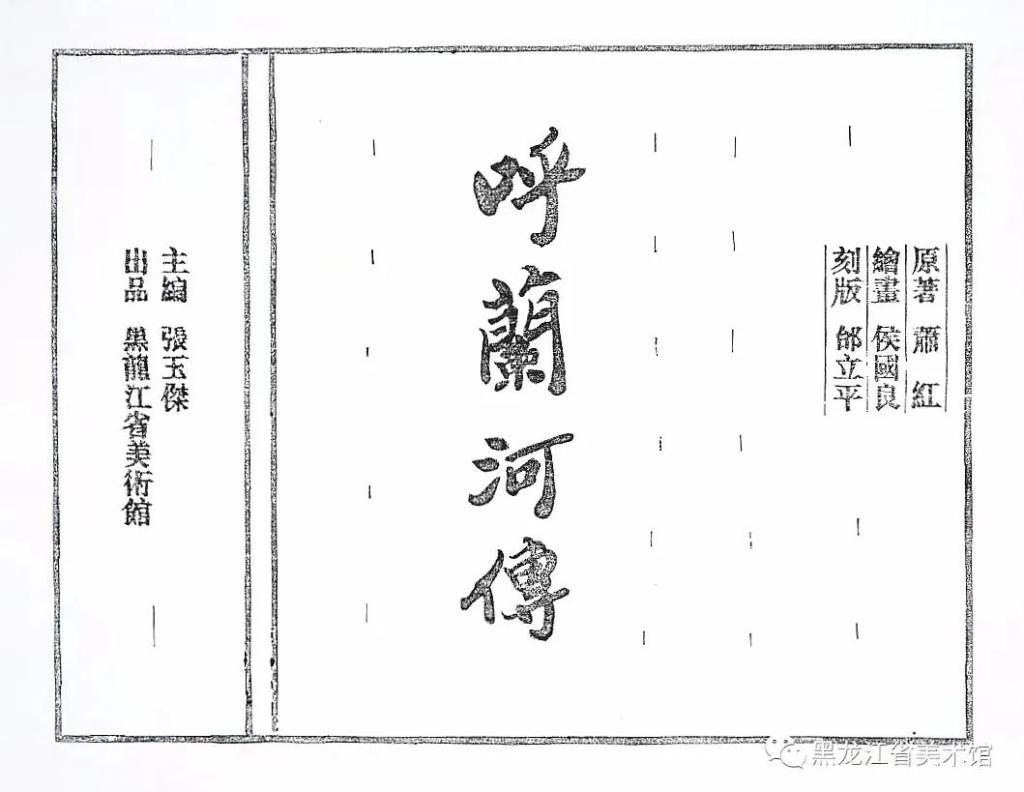 原著 蕭紅
繪畫 侯國良
刻版 邰立平
呼蘭河傳
主編 張玉傑
出品 黑龍江省美術館
黑龙江省美术馆